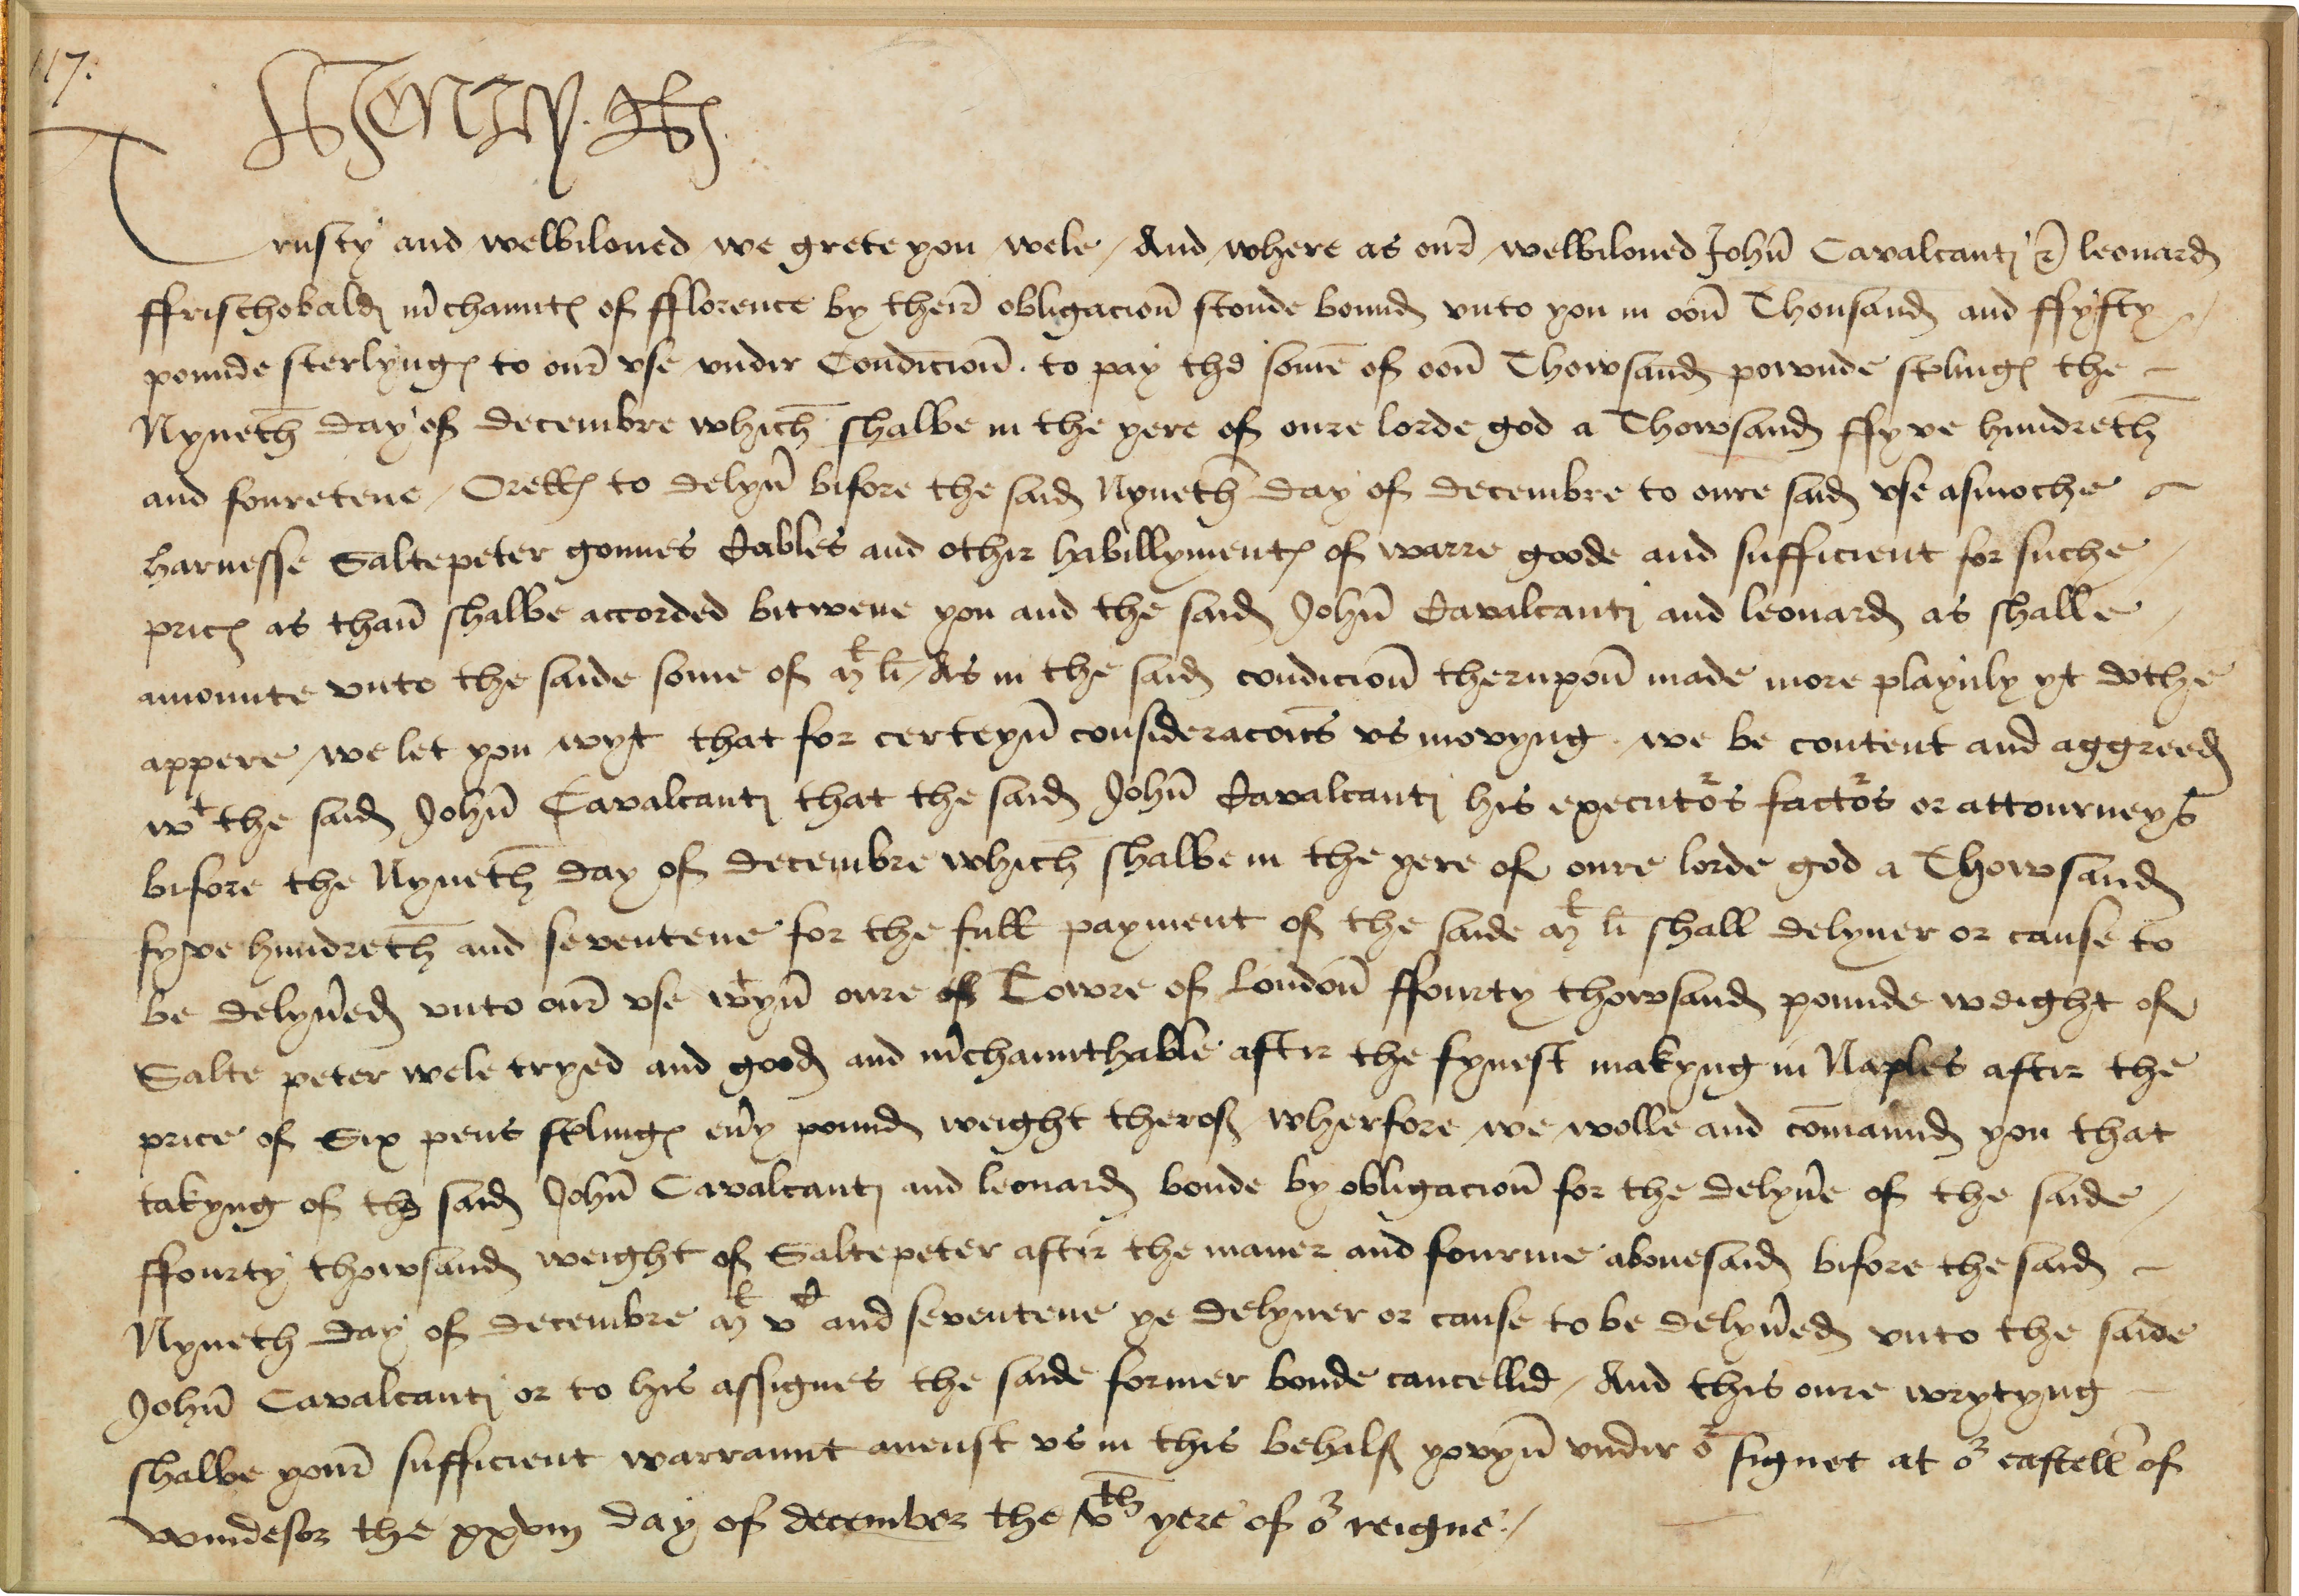 117.
Henry R
Trusty and welbiloued we grete you wele / And where as our welbiloued John Cavalcanti & leonard
ffrischobald mchaunt of fflorence by their obligacion stonde bound vnto you in oon Thousand and ffyfty
pounde sterlyng to our vse vndir Condicion . to pay the some of oon Thowsand pownde stling the
Nyneth day of decembre which shalbe in the yere of oure lorde god a Thowsand ffyve hundreth
and fouretene / Orelles to delyu bifore the said Nyneth day of decembre to oure said vse asmoche
harnesse Saltepeter gonnes Cables and othir habillyment of warre goode and sufficient for suche
pric as than shalbe accorded bitwene you and the said John Cavalcanti and leonard as shalle
amounte vnto the saide some of Ml li / As in the said condicion therupon made more playnly yt dothe
appere / we let you wyt that for certeyn consideracons vs movyng . we be content and aggreed
wt the said John Cavalcanti that the said John Cavalcanti his executors factors or attourneys
bifore the Nyneth day of decembre which shalbe in the yere of oure lorde god a Thowsand
fyve hundreth and seventene for the full payment of the saide Ml li shall delyuer or cause to
be delyued vnto our vse wtyn oure of Towre of london ffourty thowsand pounde weight of
Salte peter wele tryed and good and mchaunthable aftir the fynest makyng in Naples aftir the
price of Six pens stling euy pound weight therof / wherfore we wolle and comaund you that
takyng of the said John Cavalcanti and leonard bonde by obligacion for the delyue of the saide
ffourty thowsand weight of Saltepeter aftir the maner and fourme abouesaid bifore the said
Nyneth day of decembre Ml vC and seventene ye delyuer or cause to be delyued vnto the saide
John Cavalcanti or to his assignes the saide former bonde cancellid / And this oure wrytyng
shalbe your sufficient warraunt anenst vs in this behalf yovyn vndir or signet at or castell of
wyndesor the xxviii day of december the vth yere of or reigne /